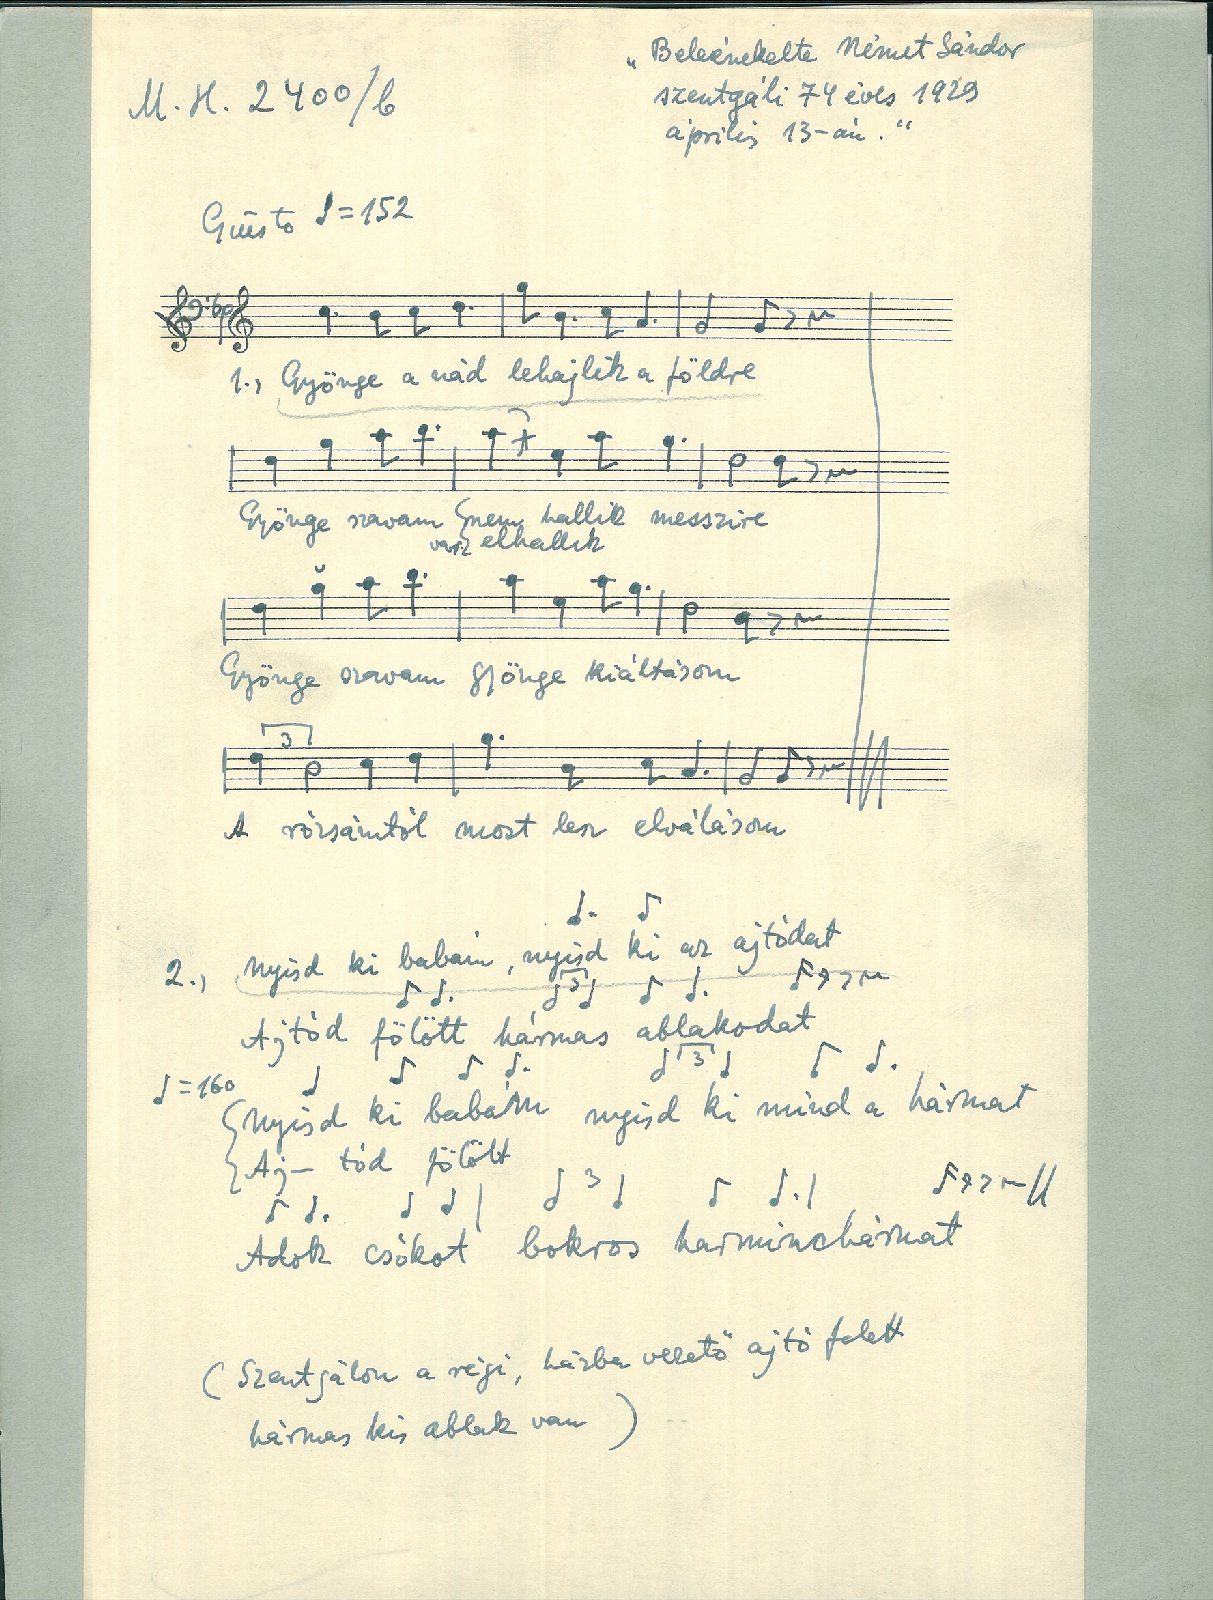 M. H. 2400/b
„Beleénekelte Német Sándor
szentgáli 74 éves 1929
április 13-án.“
Giusto ♩=152
1., Gyönge a nád lehajlik a földre
Gyönge szavam nem hallik messzire
elhallik
Gyönge szavam gyönge kiáltásom
3
A rózsámtól most lesz elválásom
2., Nyisd ki babám, nyisd ki az ajtódat
3
Ajtód fölött hármas ablakodat
♩=160
3
Nyisd ki babám nyisd ki mind a hármat
Aj- tód fölött
3
Adok csókot bokros harminchármat
(Szentgálon a régi, házba vezető ajtó felett
hármas kis ablak van)